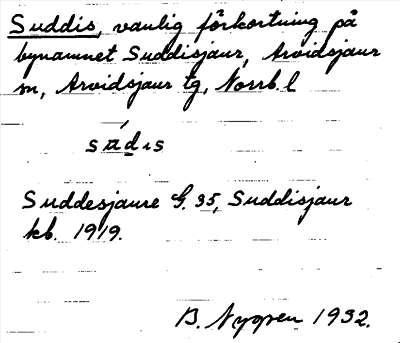 Suddis, vanlig förkortning på
bynamnet Suddisjaur, Arvidsjaur
sn, Arvidsjaur tg, Norrb. l
Suddesjaure G. 35, Suddisjaur
kb. 1919.
B. Nygren 1932.